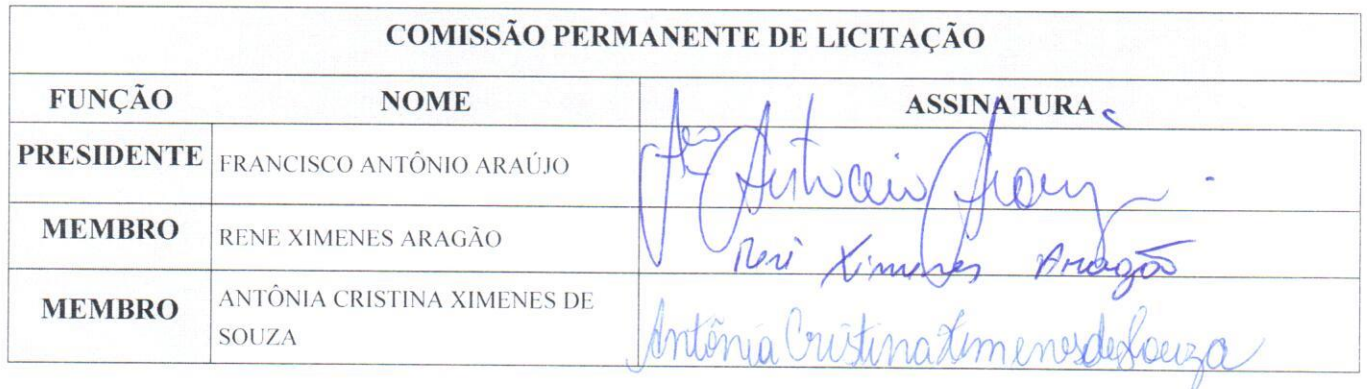 COMISSÃO PERMANENTE DE LICITAÇÃO
FUNÇÃO NOME ASSINATURA
PRESIDENTE FRANCISCO ANTÔNIO ARAÚJO Fco Antonio Arauj
MEMBRO RENE XIMENES ARAGÃO Renê Ximenes Aragão
MEMBRO ANTÔNIA CRISTINA XIMENES DE
SOUZA Antônia Cristina Ximenes de Souza